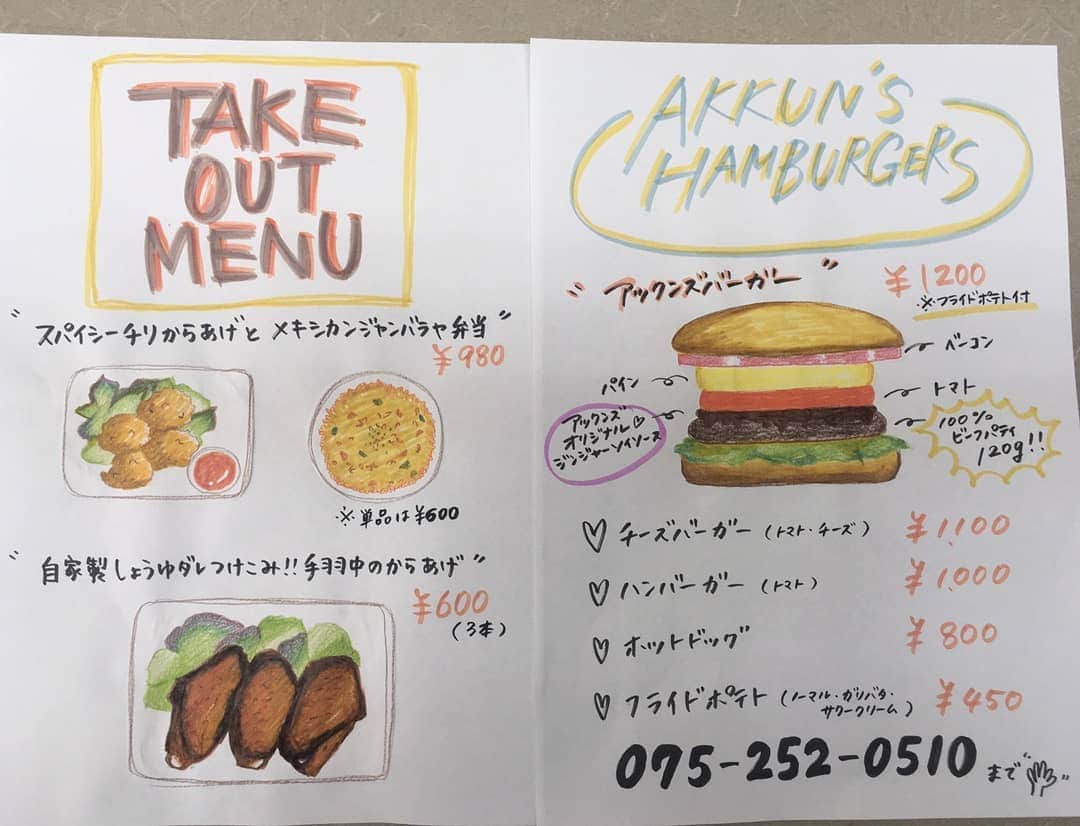 TAKE
OUT
MENU
"スパイシーチリからあげと メキシカンジャンバラヤ弁当"
¥980
※単品は¥600
"自家製しょうゆダレつけこみ!!手羽中のからあげ"
¥600
(3本)
AKKUN'S
HAMBURGERS
"アックンズバーガー"
¥1200
※フライドポテト付
ベーコン
パイン
トマト
アックンズ
オリジナル♡
ジンジャーソイソース
100%
ビーフパティ
120g!!
♡ チーズバーガー (トマト・チーズ) ¥1,100
♡ ハンバーガー (トマト) ¥1,000
♡ ホットドッグ ¥800
♡ フライドポテト (ノーマル・ガリバタ・
サワークリーム) ¥450
075-252-0510 まで